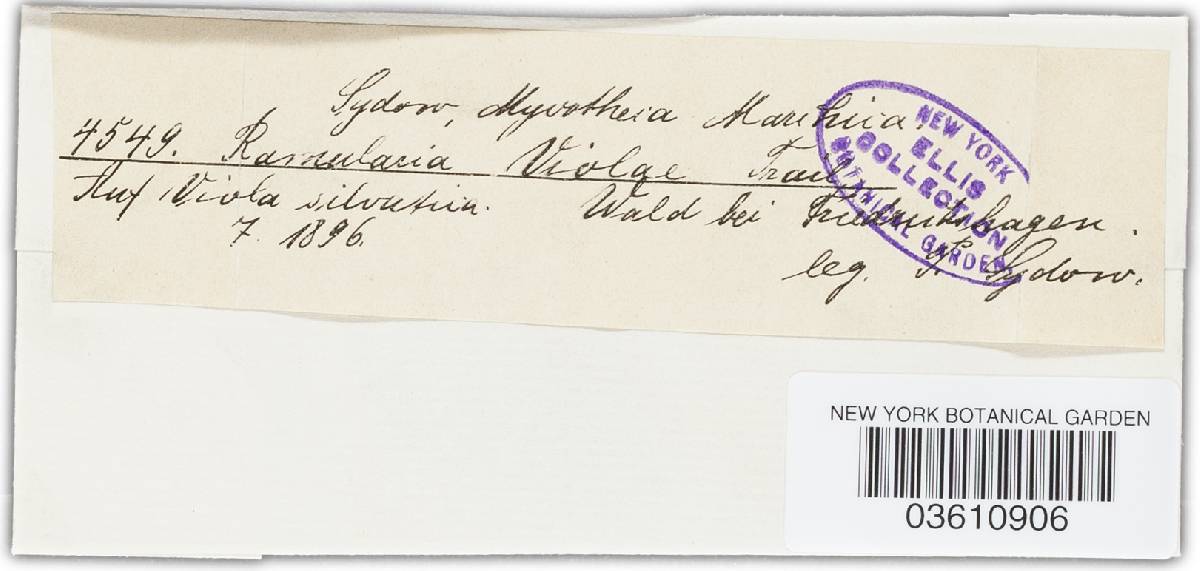 Sydow, Mycotheca Marchica.
4549. Ramularia Violae Trail.
Auf Viola silvatica. Wald bei Friedrichshagen.
7. 1896.
leg. P. Sydow.
NEW YORK
ELLIS
COLLECTION
BOTANICAL GARDEN
NEW YORK BOTANICAL GARDEN
03610906